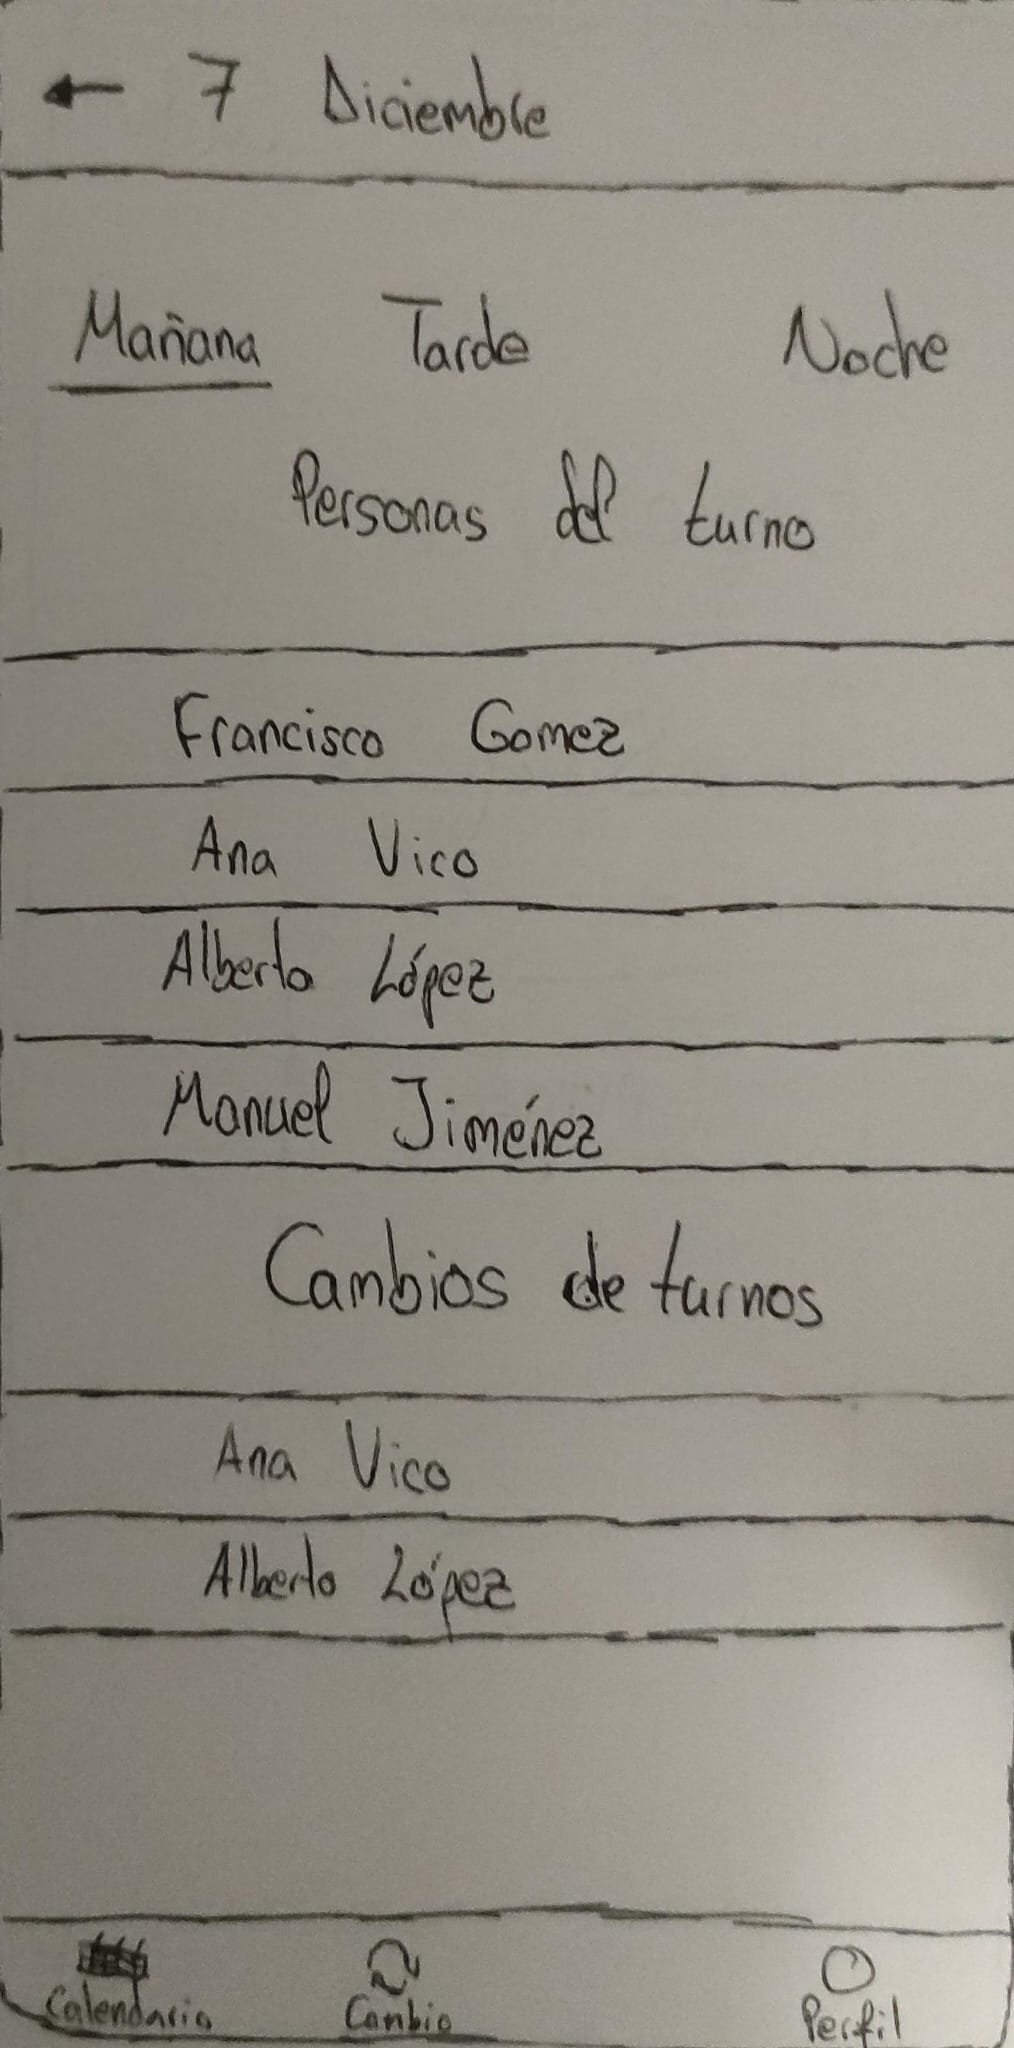 ← 7 Diciembre
Mañana Tarde Noche
Personas del turno
Francisco Gomez
Ana Vico
Alberto López
Manuel Jiménez
Cambios de turnos
Ana Vico
Alberto López
Calendario Cambio Perfil